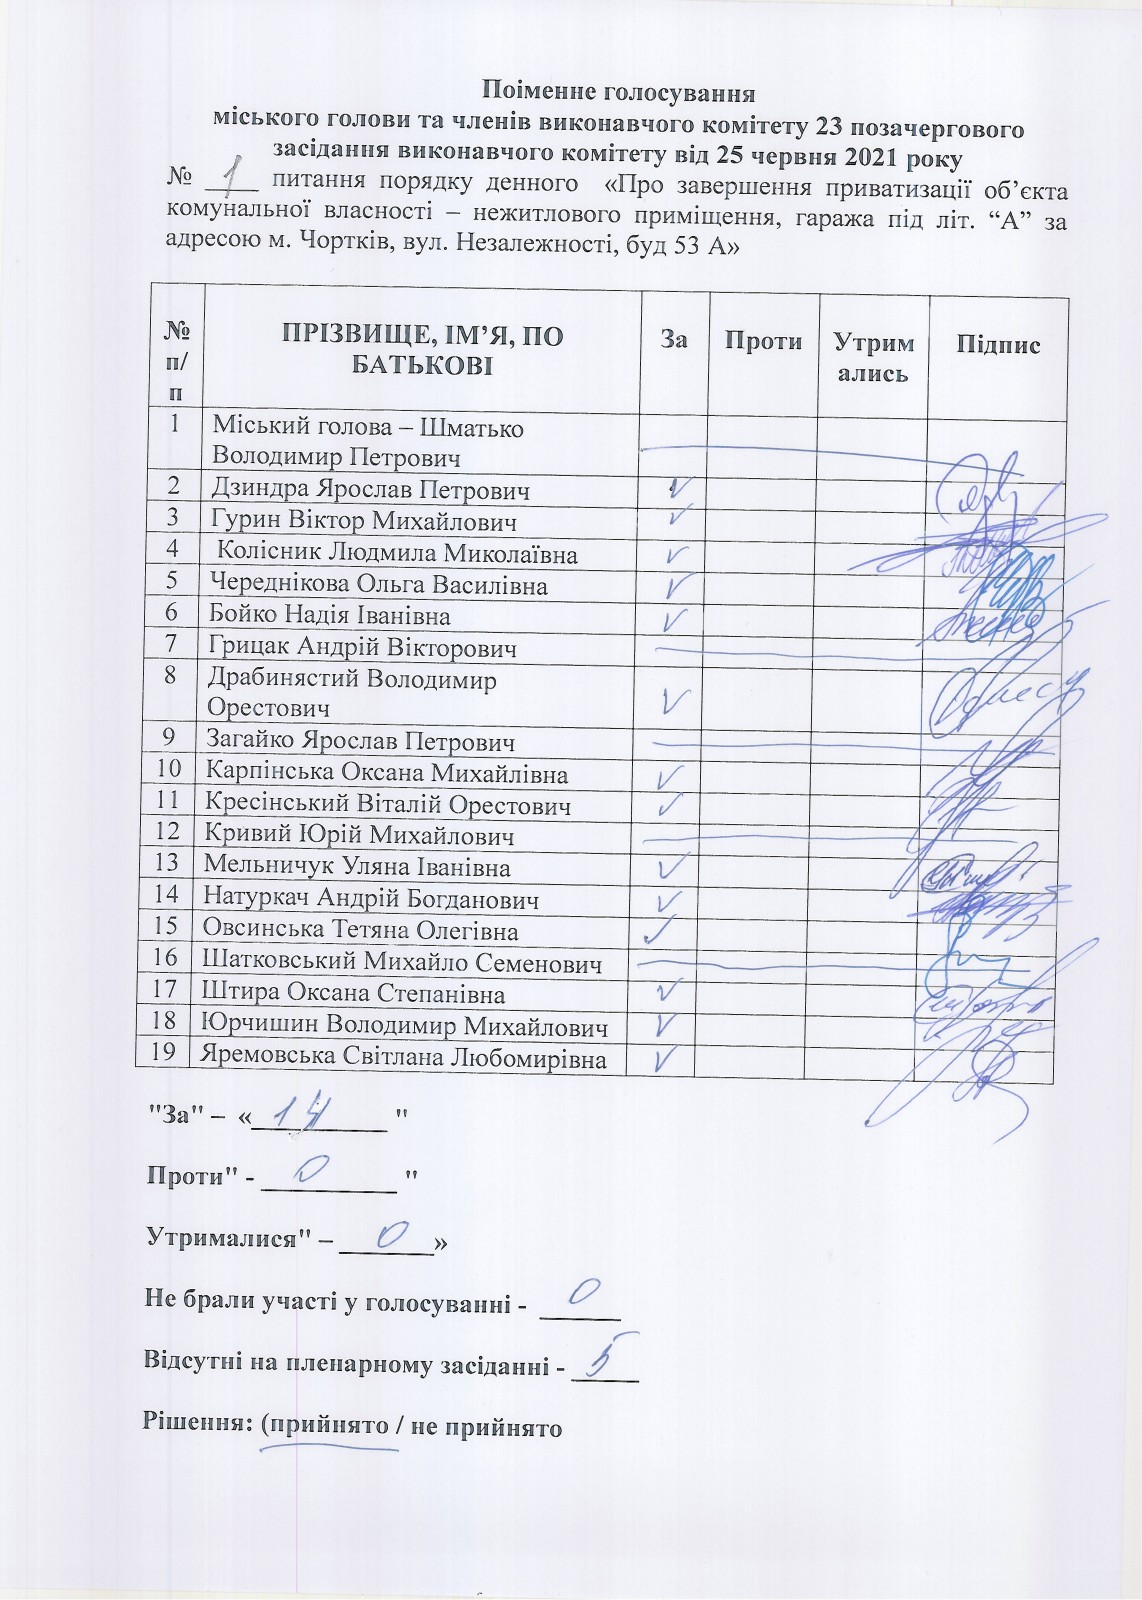 Поіменне голосування
міського голови та членів виконавчого комітету 23 позачергового
засідання виконавчого комітету від 25 червня 2021 року
№ 1 питання порядку денного «Про завершення приватизації об’єкта
комунальної власності – нежитлового приміщення, гаража під літ. “А” за
адресою м. Чортків, вул. Незалежності, буд 53 А»
№ п/п ПРІЗВИЩЕ, ІМ’Я, ПО БАТЬКОВІ За Проти Утримались Підпис
1 Міський голова – Шматько
Володимир Петрович
2 Дзиндра Ярослав Петрович
3 Гурин Віктор Михайлович
4 Колісник Людмила Миколаївна
5 Череднікова Ольга Василівна
6 Бойко Надія Іванівна
7 Грицак Андрій Вікторович
8 Драбинястий Володимир
Орестович
9 Загайко Ярослав Петрович
10 Карпінська Оксана Михайлівна
11 Кресінський Віталій Орестович
12 Кривий Юрій Михайлович
13 Мельничук Уляна Іванівна
14 Натуркач Андрій Богданович
15 Овсинська Тетяна Олегівна
16 Шатковський Михайло Семенович
17 Штира Оксана Степанівна
18 Юрчишин Володимир Михайлович
19 Яремовська Світлана Любомирівна
"За" – « 14 "
Проти" - 0 "
Утрималися" – 0 »
Не брали участі у голосуванні - 0
Відсутні на пленарному засіданні - 5
Рішення: (прийнято / не прийнято